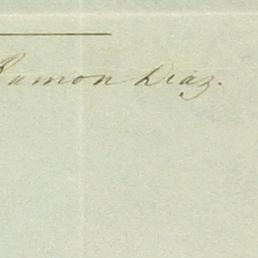 Ramon Diaz.